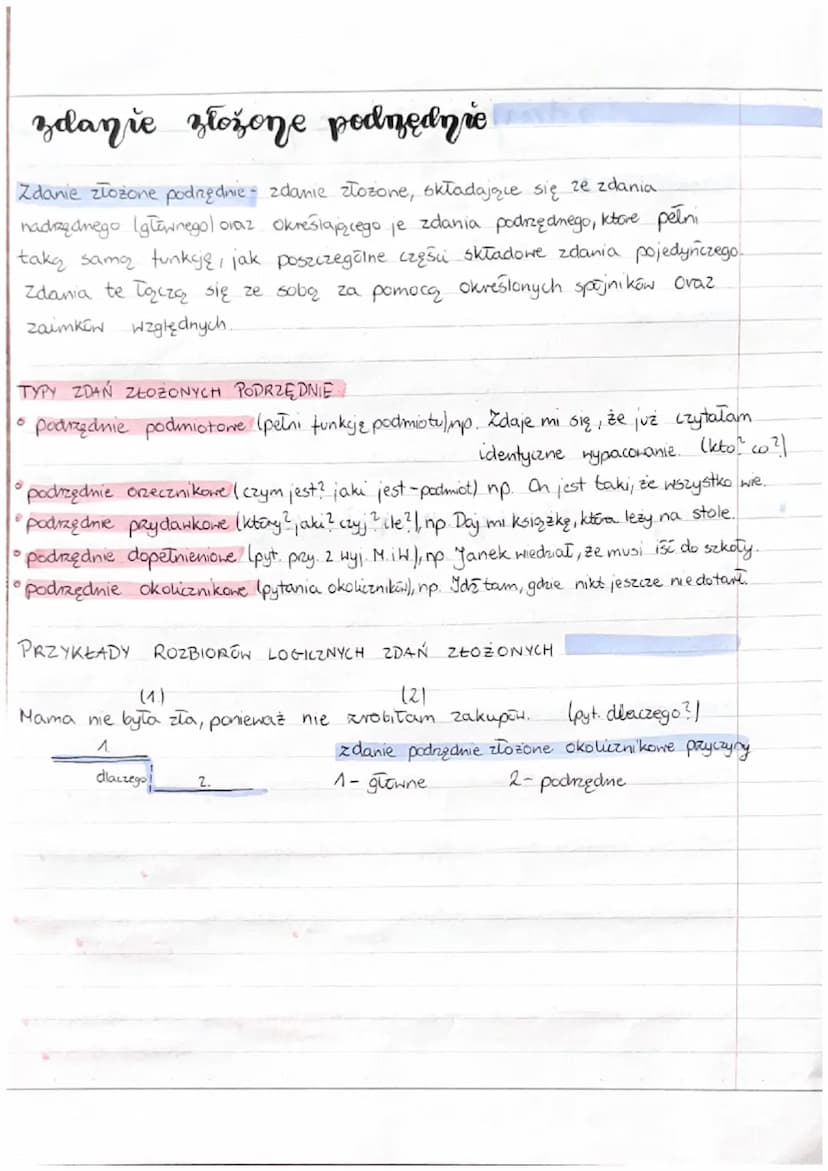 zdanie złożone podrzędnie
Zdanie złożone podrzędnie - zdanie złożone, składające się ze zdania
nadrzędnego (głównego) oraz określającego je zdania podrzędnego, które pełni
taką samą funkcję, jak poszczególne części składowe zdania pojedyńczego.
Zdania te łączą się ze sobą za pomocą określonych spójników oraz
zaimków względnych.
TYPY ZDAŃ ZŁOŻONYCH PODRZĘDNIE
• podrzędnie podmiotowe (pełni funkcję podmiotu) np. Zdaje mi się, że już czytałam
identyczne wypacowanie. (kto? co?)
• podrzędnie orzecznikowe (czym jest? jaki jest - podmiot) np. On jest taki, że wszystko wie.
• podrzędnie przydawkowe (który? jaki? czyj? ile?), np. Daj mi książkę, która leży na stole.
• podrzędnie dopełnieniowe (pyt. przy. z wyj. M. i W), np. Janek wiedział, że musi iść do szkoły.
• podrzędnie okolicznikowe (pytania okoliczników), np. Idź tam, gdzie nikt jeszcze nie dotarł.
PRZYKŁADY ROZBIORÓW LOGICZNYCH ZDAŃ ZŁOŻONYCH
(1) (2)
Mama nie była zła, ponieważ nie zrobiłam zakupów. (pyt. dlaczego?)
1. zdanie podrzędnie złożone okolicznikowe przyczyny
dlaczego? 2. 1 - główne 2 - podrzędne